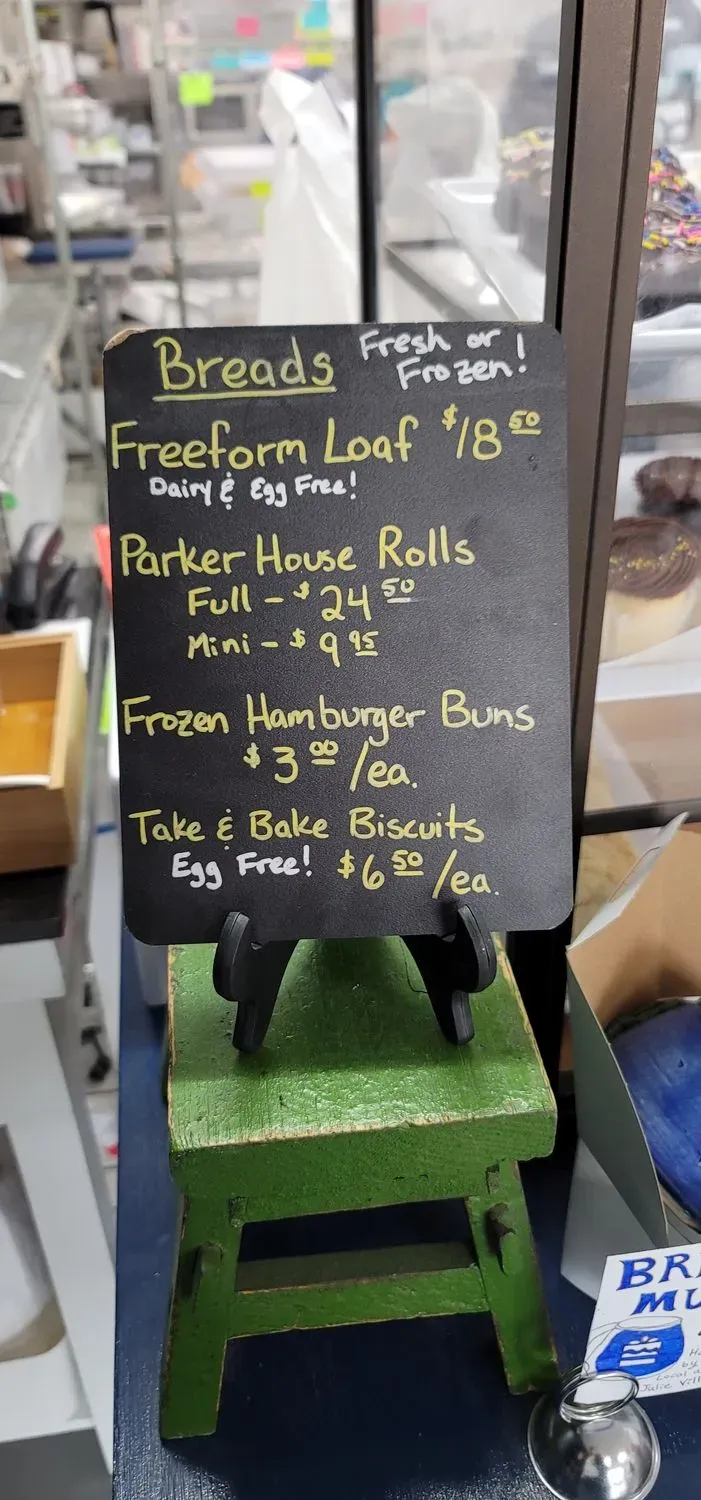 Breads Fresh or
Frozen!
Freeform Loaf $18 50
Dairy & Egg Free!
Parker House Rolls
Full - $24 50
Mini - $9 95
Frozen Hamburger Buns
$3 00 /ea.
Take & Bake Biscuits
Egg Free! $6 50 /ea.
by
Local
Julie